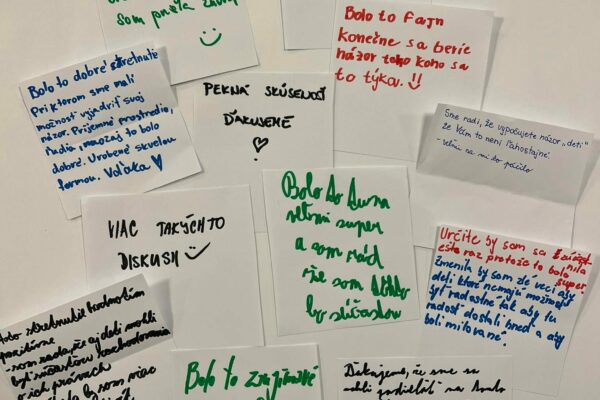 som prežila
Bolo to fajn
konečne sa berie
názor toho koho sa
to týka. !!
Bolo to dobré stretnutie
Pri ktorom sme mali
možnosť vyjadriť svoj
názor. Príjemné prostredie,
ľudia, naozaj to bolo
dobré. Urobené skvelou
formou. Vďaka
PEKNÁ SKÚSENOSŤ
ĎAKUJEME
!
Sme radi, že vypočujete názor „detí"
že Vám to není ľahostajné.
- veľmi sa mi to páčilo
VIAC TAKÝCHTO
DISKUSII
Bolo to
veľmi super
a som rád
že som
bol súčasťou
Určite by som sa zúčastnila
ešte raz pretože to bolo super.
Zmenila by som zle veci aby
deti ktoré nemajú možnosť
byť radostné tak aby tu
radosť dostali hneď a aby
boli milované.
stretnutie hodnotím
pozitívne
- som rada, že aj deti mohli
byť súčasťou rozhodovania
o ich právach
by som viac
Bolo to zaujímavé
Ďakujeme, že sme sa
mohli podieľať na